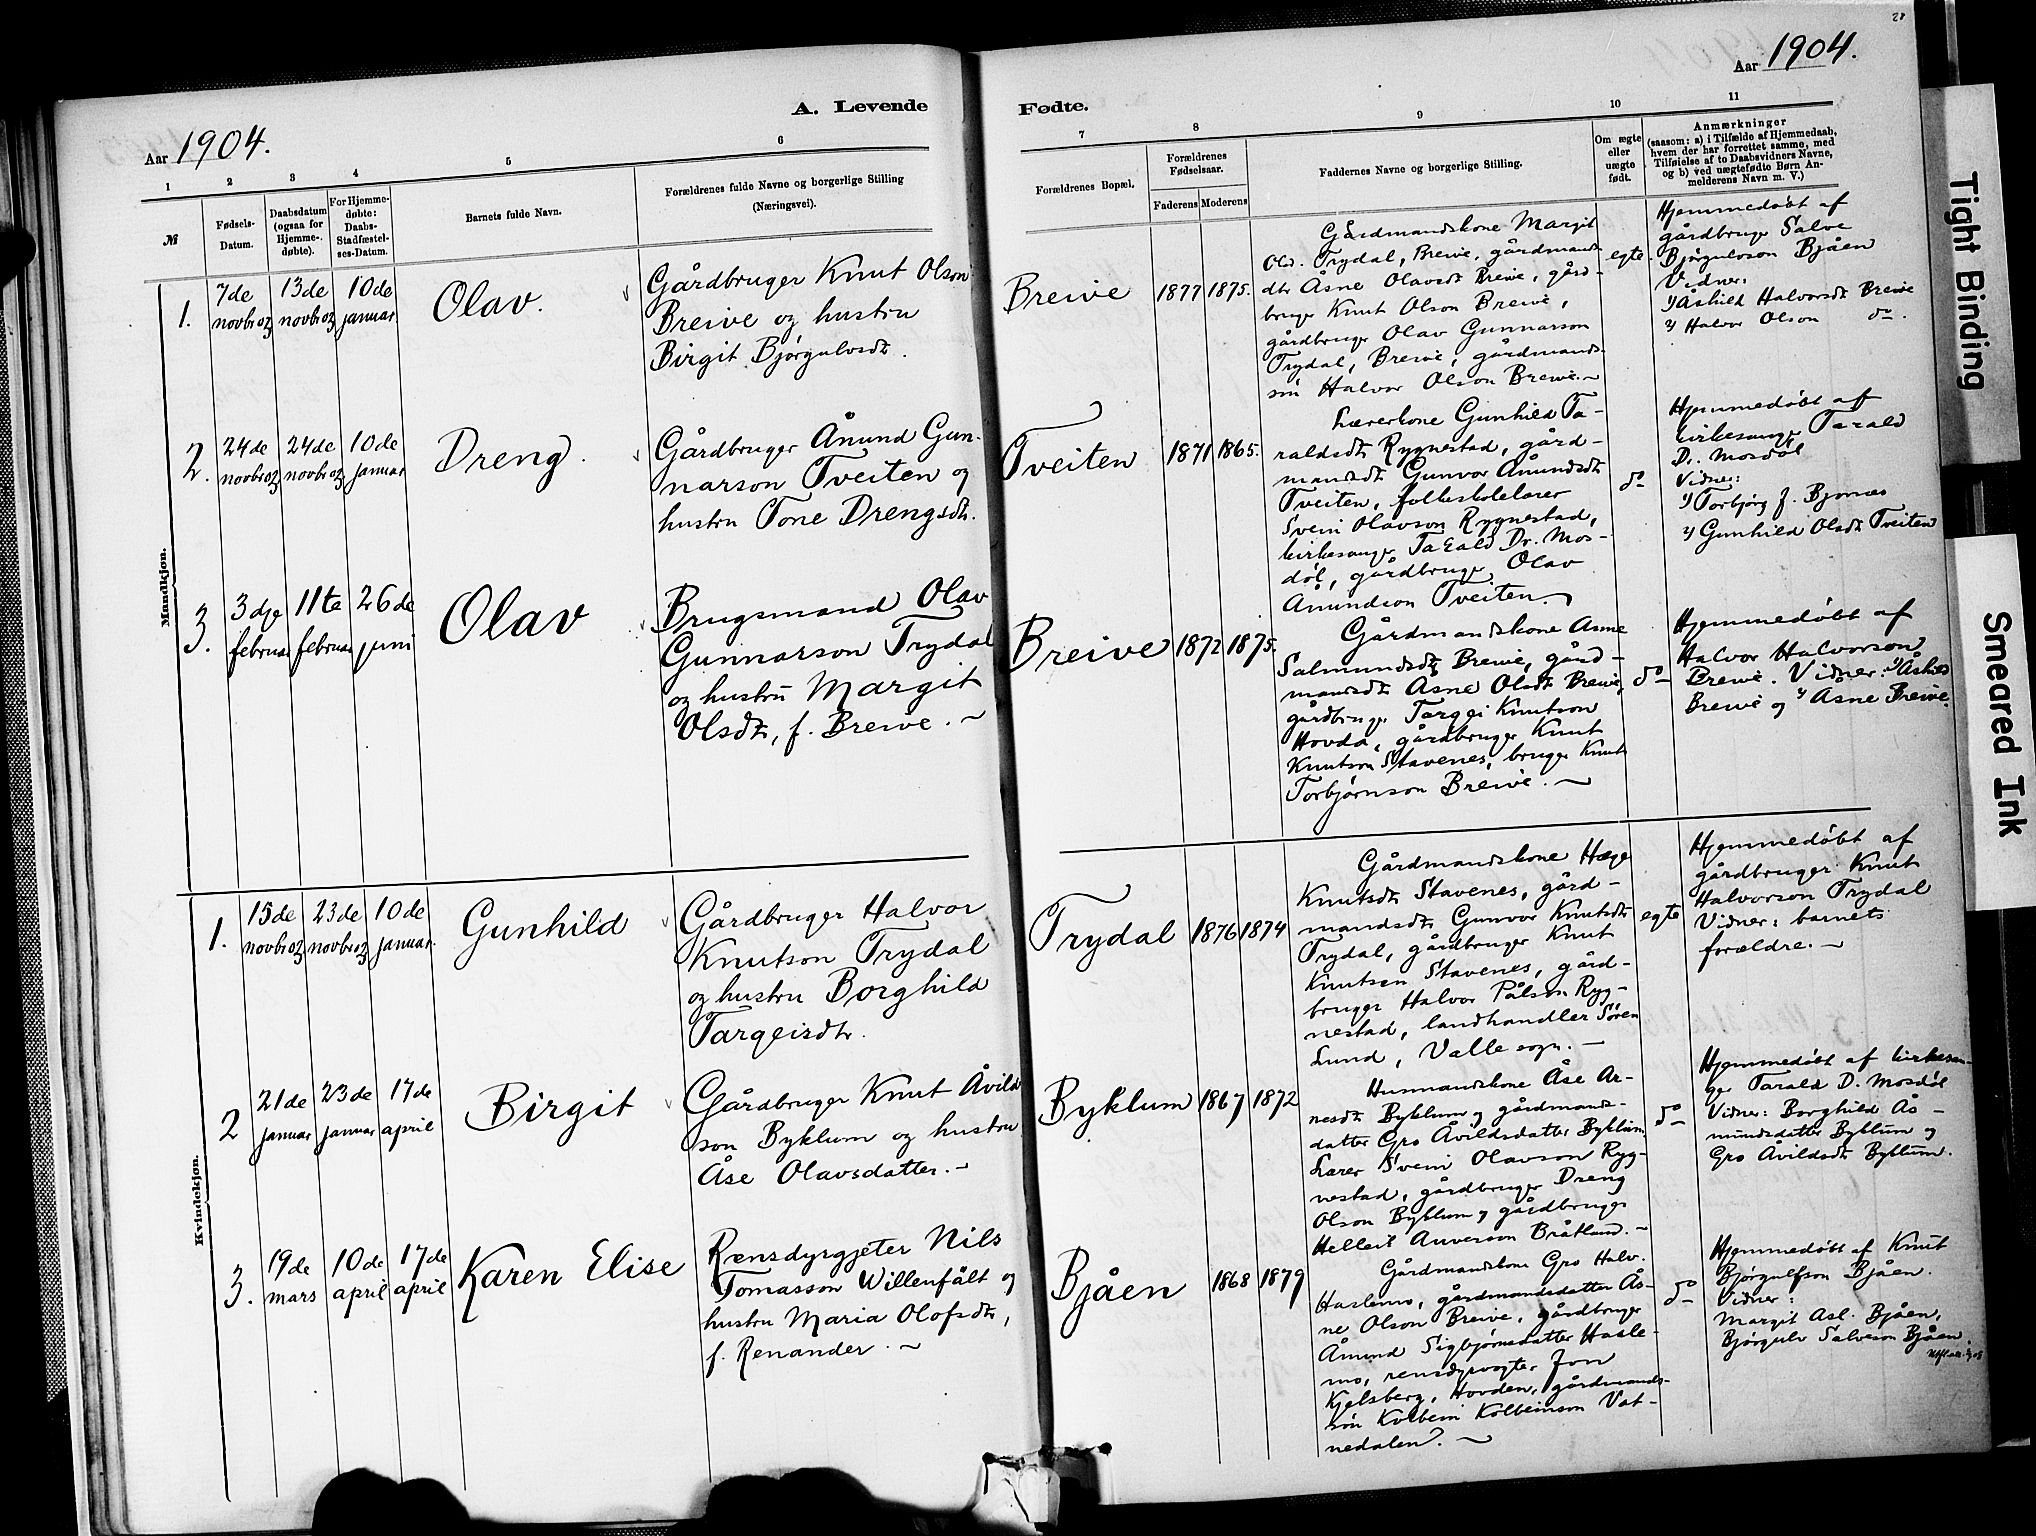 28
Aar 1904.
A. Levende
Aar 1904.
1
2
3
4
5
6
№
Fødsels-
Datum.
Daabsdatum
(ogsaa for
Hjemme-
døbte).
For Hjemme-
døbte:
Daabs-
Stadfæstel-
ses-Datum.
Barnets fulde Navn.
Forældrenes fulde Navne og borgerlige Stilling
(Næringsvei).
Mandkjøn.
1.
7de
novbr 03
13de
novbr 03
10de
januar.
Olav.
Gårdbruger Knut Olson
Breive og hustru
Birgit Bjørgulvsdt.
2.
24de
novbr 03
24de
novbr 03
10de
januar
Dreng.
Gårdbruger Ånund Gun-
narson Tveiten og
hustru Tone Drengsdt.
3.
3dje
februar
11te
februar
26de
juni
Olav
Brugsmand Olav
Gunnarson Trydal
og hustru Margit
Olsdt, f. Breive. ~
Kvindekjøn.
1.
15de
novbr 03
23de
novbr 03
10de
januar.
Gunhild
Gårdbruger Halvor
Knutson Trydal
og hustru Borghild
Targeisdt.
2
21de
januar
23de
januar
17de
april
Birgit
Gårdbruger Knut Åvild
son Byklum og hustru
Åse Olavsdatter. -
3.
19de
mars
10de
april
17de
april
Karen Elise
Rensdyrgjeter Nils
Tomasson Willenfålt og
hustru Maria Olofsdt,
f. Renander. ~
Fødte.
7
8
9
10
11
Forældrenes Bopæl.
Forældrenes
Fødselsaar.
Faderens
Moderens
Faddernes Navne og borgerlige Stilling.
Om ægte
eller
uægte
født.
Anmærkninger
(saasom: a) i Tilfælde af Hjemmedaab,
hvem der har forrettet samme, med
Tilføielse af to Daabsvidners Navne,
og b) ved uægtefødte Børn An-
melderens Navn m. V.)
Breive
1877
1875.
Gårdmandskone Margit
Old. Trydal, Breive, gårdmands-
dtr Åsne Olavsdt Breive, gård-
bruger Knut Olson Breive,
gårdbruger Olav Gunnarson
Trydal, Breive, gårdmands-
søn Halvor Olson Breive. ~
egte.
Hjemmedøbt af
gårdbruger Salve
Bjørgulvson Bjåen
Vidner:
1) Åshild Halvorsdt Breive
2) Halvor Olson do.
Tveiten
1871
1865.
Lærerkone Gunhild Ta-
raldsdt Rygnestad, gård-
mandsdt Gunvor Ånundsdt
Tveiten, folkeskolelærer
Svein Olavson Rygnestad,
kirkesanger Tarald Dr. Mos-
døl, gårdbruger Olav
Ånundson Tveiten. ~
do
Hjemmedøbt af
kirkesanger Tarald
Dr. Mosdøl
Vidner:
1) Torbjørg f. Bjornes
2) Gunhild Olsdt Tveiten
Breive
1872
1875.
Gårdmandskone Åsne
Salmundsdt Breive, gård-
mandsdt Åsne Olsdt Breive,
gårdbruger Targei Knutson
Hovda, gårdbruger Knut
Knutson Stavenes, bruger Knut
Torbjørnson Breive. ~
do
Hjemmedøbt af
Halvor Halvorson
Breive. Vidner: 1) Åshild
Breive og 2) Åsne Breive.
Trydal
1876
1874
Gårdmandskone Hæge
Knutsdt Stavenes, gård-
mandsdt Gunvor Knutsdt
Trydal, gårdbruger Knut
Knutsen Stavenes, gård-
bruger Halvor Pålson Ryg-
nestad, landhandler Søren
Lund, Valle sogn. -
egte
Hjemmedøbt af
gårdbruger Knut
Halvorson Trydal
Vidner: barnets
forældre. -
Byklum
1867
1872
Husmandskone Åse Ar-
nesdt Byklum og gårdmands-
datter Gro Åvildsdatter Byklum,
Lærer Svein Olavson Ryg-
nestad, gårdbruger Dreng
Olson Byklum og gårdbruger
Helleit Anverson Bråtland. -
do
Hjemmedøbt af kirkesan-
ger Tarald D. Mosdøl
Vidner: Borghild Ås-
mundsdatter Byklum og
Gro Åvildsdt Byklum.
Bjåen
1868
1879
Gårdmandskone Gro Halv.
Haslemo, gårdmandsdatter Ås-
ne Olson Breive, gårdbruger
Åmund Sigbjørnsdatter Hasle-
mo, rensdyrvogter Jon
Kjelsberg, Hovden, gårdmands-
søn Kolbein Kolbeinson Vat-
nedalen. ~
do
Hjemmedøbt af Knut
Bjørgulfson Bjåen.
Vidner:
Margit Asl. Bjåen,
Bjørgulv Salveson Bjåen
Tight Binding
Smeared Ink